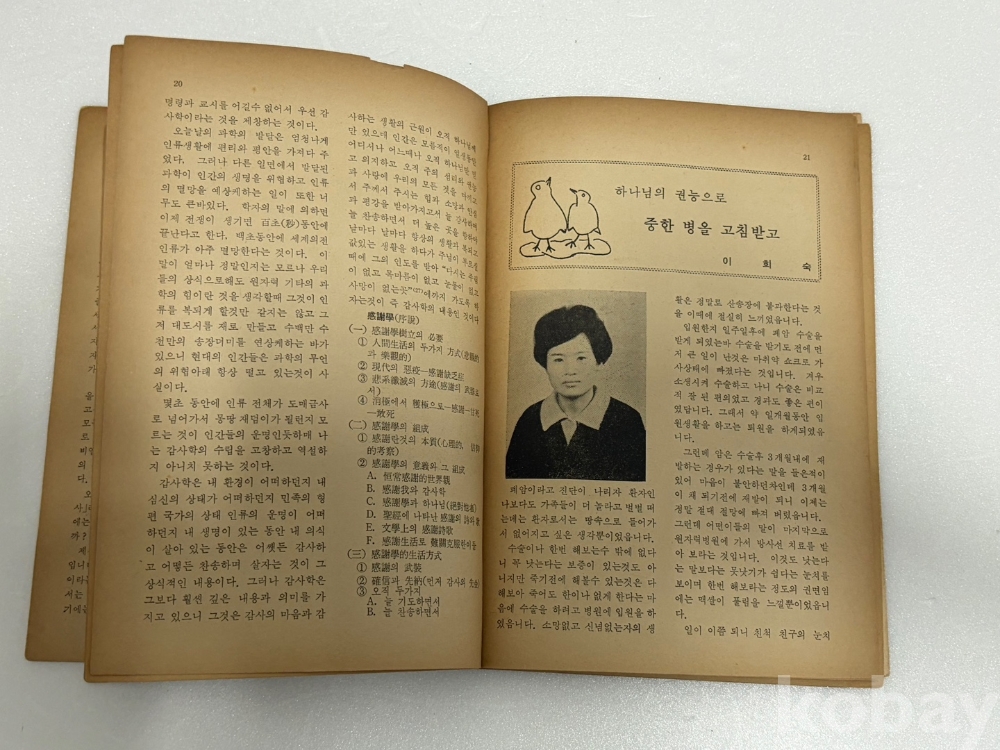 20
명령과 교시를 어길수 없어서 우선 감
사학이라는 것을 제창하는 것이다.
오늘날의 과학의 발달은 엄청나게
인류생활에 편리와 평안을 가져다 주
었다. 그러나 다른 일면에서 발달된
과학이 인간의 생명을 위협하고 인류
의 멸망을 예상케하는 일이 또한 너
무도 큰바있다. 학자의 말에 의하면
이제 전쟁이 생기면 百초(秒)동안에
끝난다고 한다. 백초동안에 세계의전
인류가 아주 멸망한다는 것이다. 이
말이 얼마나 정말인지는 모르나 우리
들의 상식으로해도 원자력 기타의 과
학의 힘이란 것을 생각할때 그것이 인
류를 복되게 할것만 같지는 않고 그
저 대도시를 재로 만들고 수백만 수
천만의 송장더미를 연상케하는 바가
있으니 현대의 인간들은 과학의 무언
의 위험아래 항상 떨고 있는것이 사
실이다.
몇초 동안에 인류 전체가 도매금사
로 넘어가서 몽땅 재덤이가 될런지 모
르는 것이 인간들의 운명인듯하매 나
는 감사학의 수립을 고창하고 역설하
지 아니치 못하는 것이다.
감사학은 내 환경이 어떠하던지 내
심신의 상태가 어떠하던지 민족의 형
편 국가의 상태 인류의 운명이 어떠
하던지 내 생명이 있는 동안 내 의식
이 살아 있는 동안은 어쨋든 감사하
고 어떻든 찬송하며 살자는 것이 그
상식적인 내용이다. 그러나 감사학은
그보다 훨씬 깊은 내용과 의미를 가
지고 있으니 그것은 감사의 마음과 감
사하는 생활의 근원이 오직 하나님께
만 있으매 인간은 모름직이
어디서나 어느때나 오직 하나님만 믿
고 의지하고 오직 주의 섭리와 은총
과 사랑에 우리의 모든 것을 마끼고
서 주께서 주시는 힘과 소망과 안위
과 평강을 받아가지고서 늘 감사하며
늘 찬송하면서 더 높은 곳을 향하야
날마다 날마다 향상의 생활과 복되고
값있는 생활을 하다가 주님이 부르실
때에 그의 인도를 받아 “다시는 주림
이 없고 목마름이 없고 눈물이 없고
사망이 없는곳”에까지 가도록 하
자는것이 즉 감사학의 내용인 것이다
感謝學(序說)
(一) 感謝學樹立의 必要
① 人間生活의 두가지 方式(悲觀的
과 樂觀的)
② 現代의 惡疫—感謝缺乏症
③ 悲系殲滅의 方途(感謝의 武器
서)
④ 消極에서 積極으로—感謝
一敢死
(二) 感謝學의 組成
① 感謝란것의 本質(心理的, 信仰
的考察)
② 感謝學의 意義와 그 組成
A. 恒常感謝的世界觀
B. 感謝我와 감사학
C. 感謝學과 하나님(絕對他者)
D. 聖經에 나타난 感謝의 詩와
E. 文學上의 感謝詩歌
F. 感謝生活로 難關克服한이들
(三) 感謝學的生活方式
① 感謝의 武裝
② 確信과 先納(먼저 감사의 先金)
③ 오직 두가지
A. 늘 기도하면서
B. 늘 찬송하면서
21
하나님의 권능으로
중한 병을 고침받고
이 희 숙
폐암이라고 진단이 나리자 환자인
나보다도 가족들이 더 놀라고 벌벌 떠
는데는 환자로서는 땅속으로 들어가
서 없어지고 싶은 생각뿐이었읍니다.
수술이나 한번 해보는수 밖에 없다
니 꼭 낫는다는 보증이 있는것도 아
니지만 죽기전에 해볼수 있는것은 다
해보아 죽어도 한이나 없게 한다는 마
음에 수술을 하려고 병원에 입원을 하
였읍니다. 소망없고 신념없는자의 생
활은 정말로 산송장에 불과한다는 것
을 이때에 절실히 느끼었읍니다.
입원한지 일주일후에 폐암 수술을
받게 되었는데마 수술을 받기도 전에 먼
저 큰 일이 난것은 마취약 쇼크로 가
사상태에 빠졌다는 것입니다. 겨우
소생시켜 수술하고 나니 수술은 비교
적 잘 된 편의었고 경과도 좋은 편이
었답니다. 그래서 약 일개월동안 입
원생활을 하고는 퇴원을 하게되였읍
니다.
그런데 암은 수술후 3개월내에 재
발하는 경우가 있다는 말을 들은적이
있어 마음이 불안하던차인데 3개월
이 채 되기전에 재발이 되니 이제는
정말 절대 절망에 빠져 버렸읍니다.
그런데 어떤이들의 말이 마지막으로
원자력병원에 가서 방사선 치료를 받
아 보라는 것입니다. 이것도 낫는다
는 말보다는 못낫기가 쉽다는 눈치를
보이며 한번 해보라는 정도의 권면임
에는 맥셀이 풀림을 느낄뿐이었읍니
다.
일이 이쯤 되니 친척 친구의 눈치
kobay